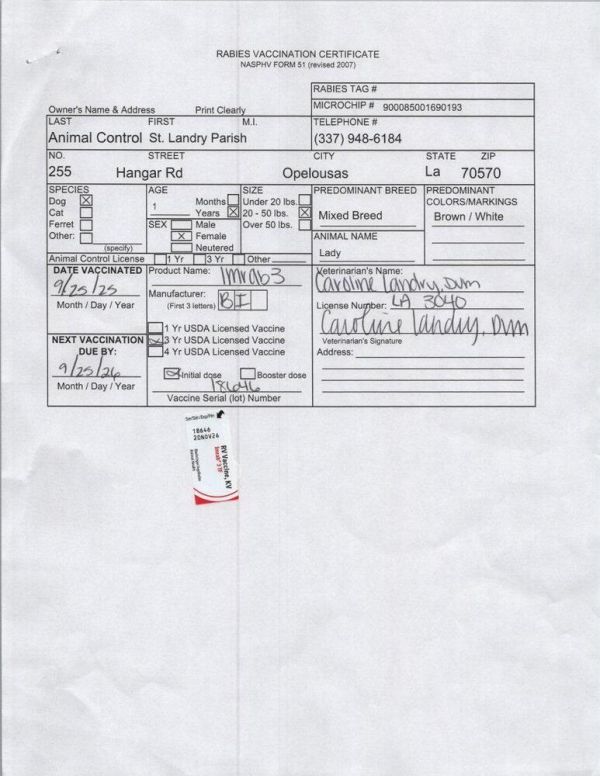 RABIES VACCINATION CERTIFICATE
NASPHV FORM 51 (revised 2007)
RABIES TAG #
Owner's Name & Address Print Clearly
MICROCHIP # 900085001690193
LAST FIRST M.I.
TELEPHONE #
Animal Control St. Landry Parish
(337) 948-6184
NO. STREET CITY STATE ZIP
255 Hangar Rd Opelousas La 70570
SPECIES
Dog X
Cat
Ferret
Other:
(specify)
AGE
1
Months
Years X
SIZE
Under 20 lbs.
20 - 50 lbs. X
Over 50 lbs.
SEX
Male
X Female
Neutered
PREDOMINANT BREED
Mixed Breed
ANIMAL NAME
Lady
PREDOMINANT
COLORS/MARKINGS
Brown / White
Animal Control License 1 Yr 3 Yr Other
DATE VACCINATED
9/25/25
Month / Day / Year
NEXT VACCINATION
DUE BY:
9/25/26
Month / Day / Year
Product Name: Imrab3
Manufacturer: BI
(First 3 letters)
1 Yr USDA Licensed Vaccine
3 Yr USDA Licensed Vaccine
4 Yr USDA Licensed Vaccine
Initial dose Booster dose
18646
Vaccine Serial (lot) Number
Veterinarian's Name:
Caroline Landry, DVM
License Number: LA 3040
Caroline Landry, DVM
Veterinarian's Signature
Address:
18646
20NOV26
RV Vaccine, KV